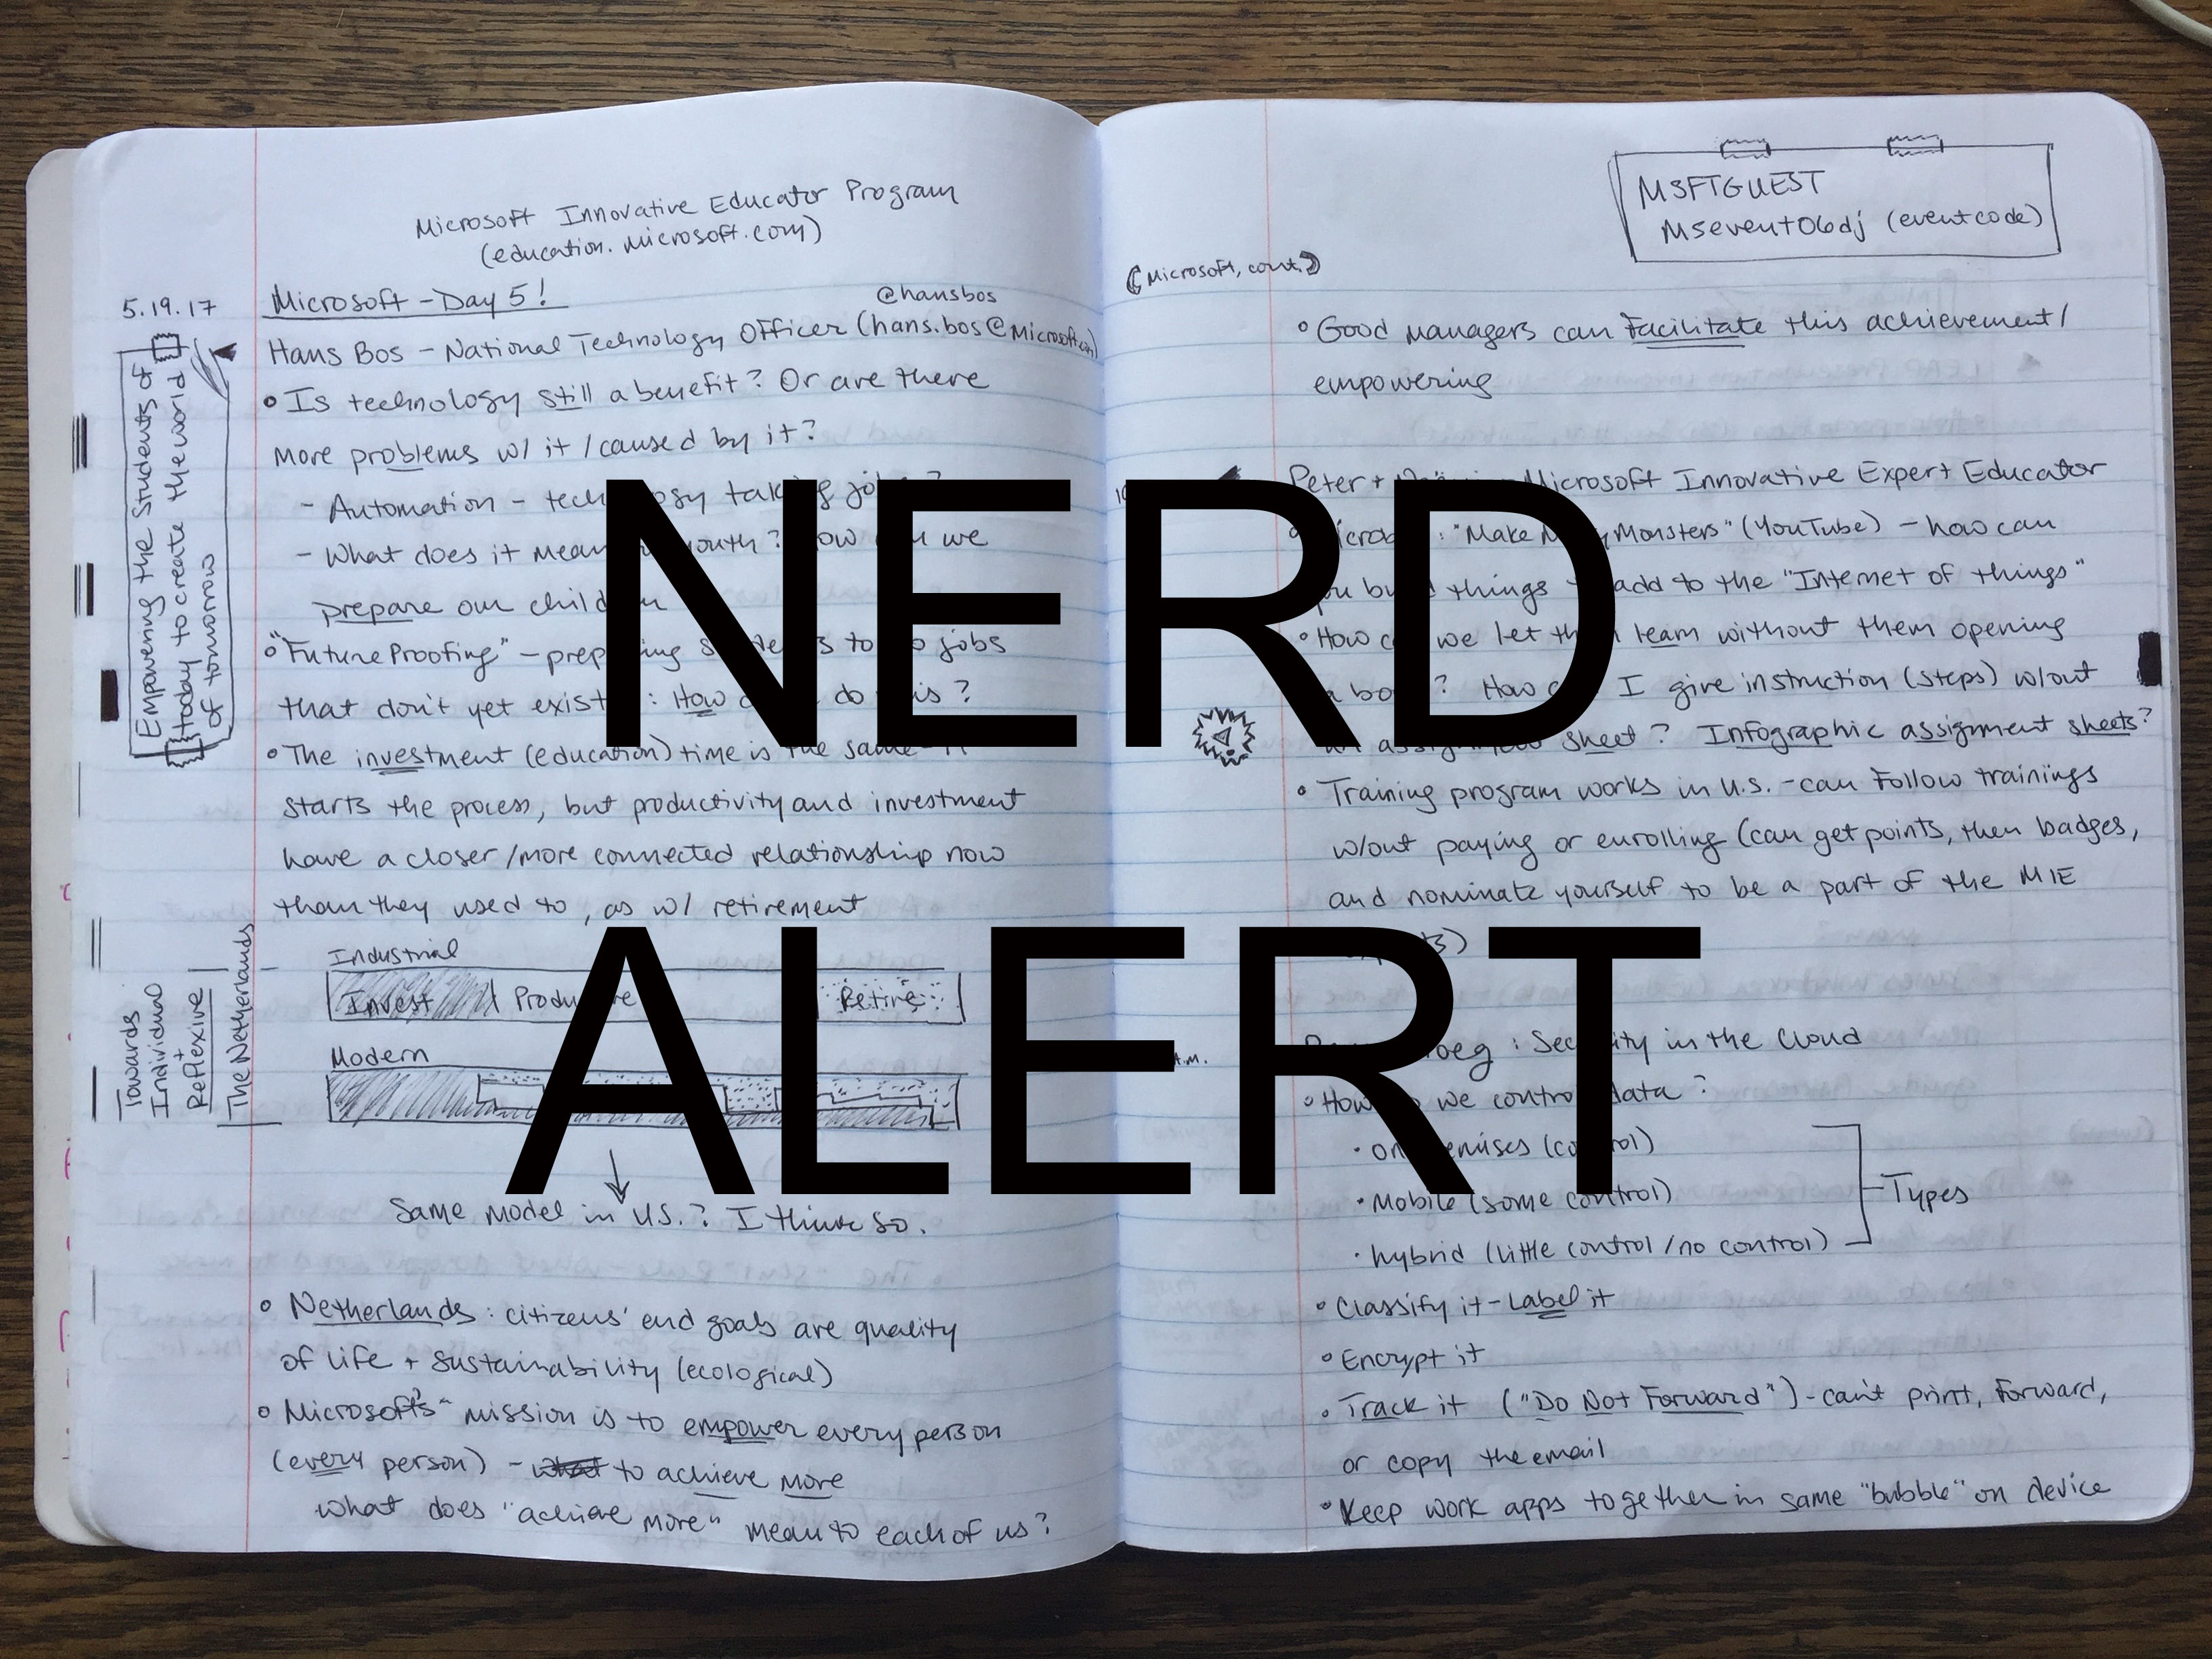 Microsoft Innovative Educator Program
(education.microsoft.com)
5.19.17
Microsoft - Day 5!
@hansbos
Hans Bos - National Technology Officer (hans.bos@Microsoft.com)
Empowering the Students of
today to create the world
of tomorrow
• Is technology still a benefit? Or are there
more problems w/ it / caused by it?
- Automation - technology taking jobs?
- What does it mean youth? How can we
prepare our children
• "Future Proofing" - preparing students to do jobs
that don't yet exist: How do this?
• The investment (education) time is the same - it
starts the process, but productivity and investment
have a closer/more connected relationship now
than they used to, as w/ retirement
Towards
Individual +
Reflexive
The Netherlands
Industrial
Invest Productive Retire
Modern
Same model in U.S.? I think so.
• Netherlands: citizens' end goals are quality
of life + sustainability (ecological)
• Microsoft's mission is to empower every person
(every person) - what to achieve more
what does "achieve more" mean to each of us?
MSFTGUEST
Msevent06dj (event code)
(Microsoft, cont.)
• Good managers can facilitate this achievement/
empowering
Peter + Microsoft Innovative Expert Educator
• "Make Monsters" (YouTube) - how can
you build things to add to the "Internet of things"
• How can we let them learn without them opening
a book? How can I give instruction (steps) w/out
an assignment sheet? Infographic assignment sheets?
• Training program works in U.S. - can follow trainings
w/out paying or enrolling (can get points, then badges,
and nominate yourself to be a part of the MIE
experts)
A.M.
: Security in the Cloud
• How do we control data?
• on premises (control)
• Mobile (some control)
• hybrid (little control/no control)
Types
• Classify it - Label it
• Encrypt it
• Track it ("Do Not Forward") - can't print, forward,
or copy the email
• Keep work apps together in same "bubble" on device
NERD
ALERT